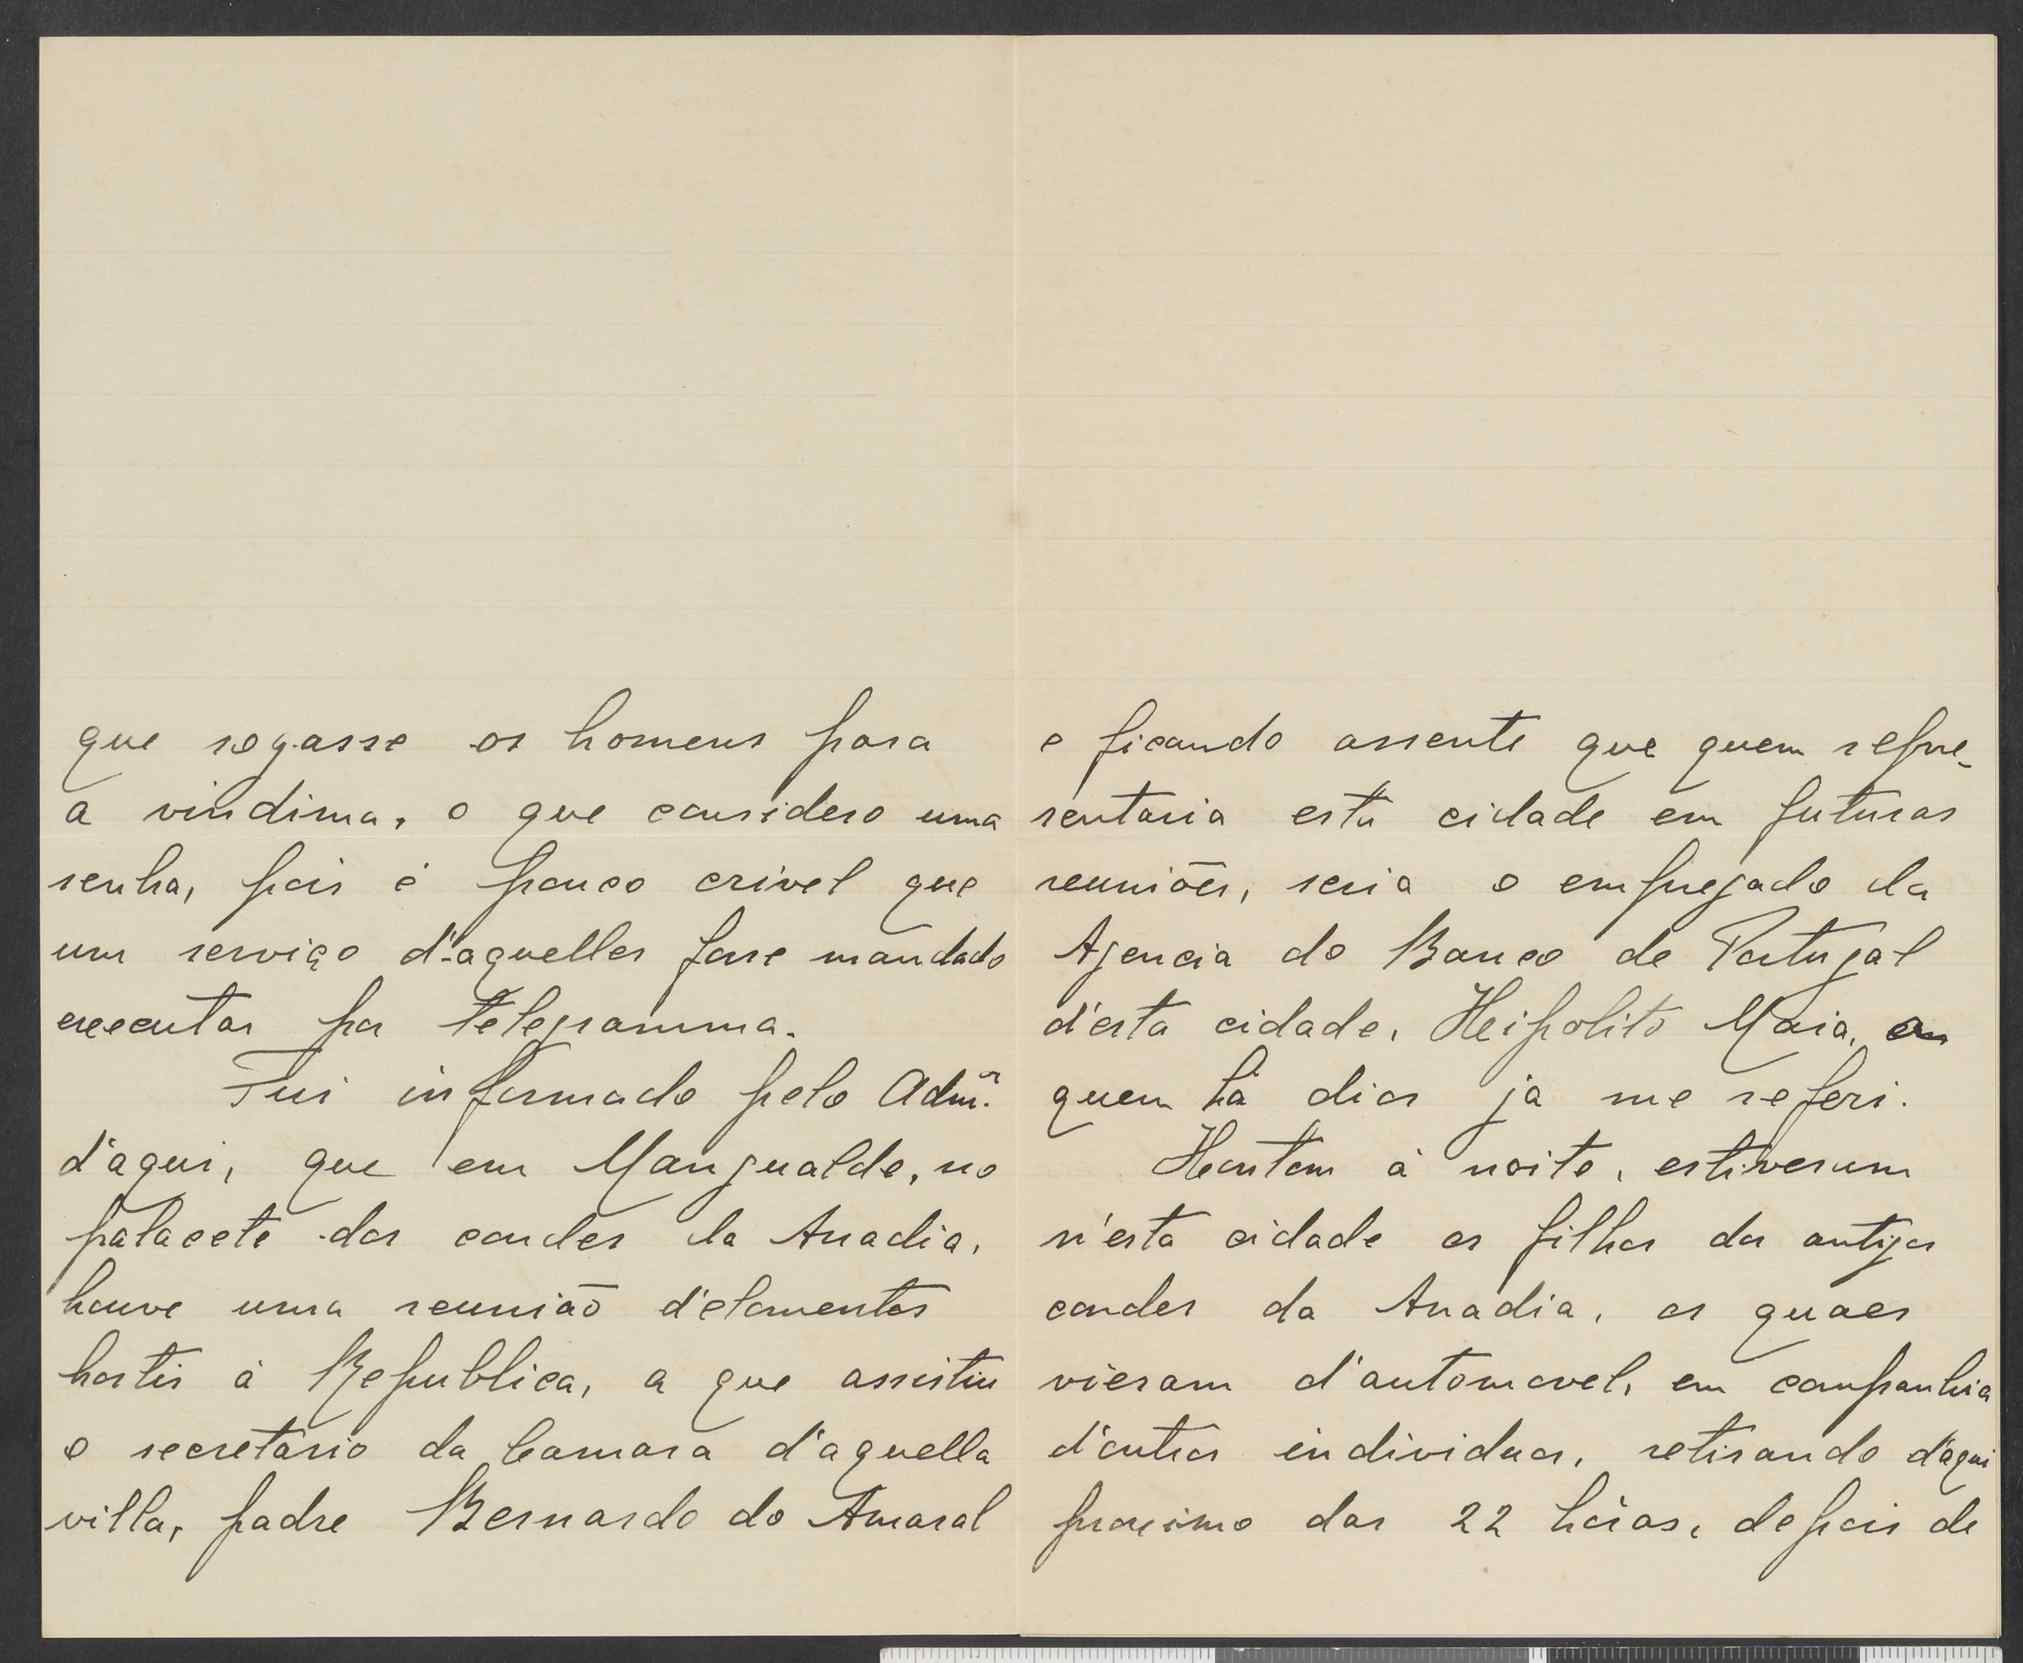 que rogasse os homens para
a vindima, o que considero uma
senha, pois é pouco crivel que
um serviço d'aquelles fosse mandado
executar por telegramma.
Fui informado pelo Admr.
d'aqui, que em Mangualde, no
palacete dos condes da Anadia,
houve uma reunião d'elementos
hostis á Republica, a que assistiu
o secretário da Camara d'aquella
villa, padre Bernardo do Amaral
e ficando assente que quem repre-
sentaria esta cidade em futuras
reuniões, seria o empregado da
Agencia do Banco de Portugal
d'esta cidade, Heipolito Maia, a
quem há dias já me referi.
Hontem á noite, estiveram
n'esta cidade os filhos dos antigos
condes da Anadia, os quaes
vieram d'automovel, em companhia
d'outros individuos, retirando d'aqui
proximo das 22 hóras, depois de